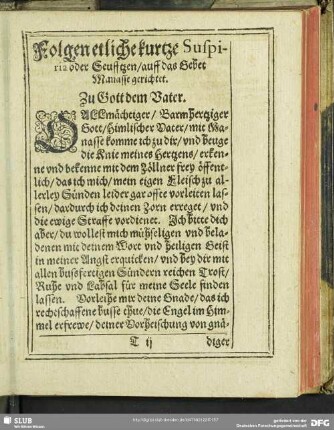 Folgen etliche kurtze Suspi-
ria oder Seufftzen / auff das Gebet
Manasse gerichtet.
Zu Gott dem Vater.
O ALLmächtiger / Barmhertziger
Gott / Himlischer Vater / mit Ma-
nasse komme ich zu dir / vnd beuge
die Knie meines Hertzens / erken-
ne vnd bekenne mit dem Zöllner frey öffent-
lich / das ich mich / mein eigen Fleisch zu al-
lerley Sünden leider gar offte verleiten las-
sen / dardurch ich deinen Zorn erreget / vnd
die ewige Straffe vordienet. Ich bitte dich
aber / du wollest mich mühseligen vnd bela-
denen mit deinem Wort vnd heiligen Geist
in meiner Angst erquicken / vnd bey dir mit
allen busfertigen Sündern reichen Trost /
Ruhe vnd Labsal für meine Seele finden
lassen. Vorleihe mir deine Gnade / das ich
rechtschaffene busse thue / die Engel im Him-
mel erfrewe / deiner Vorheischung von gnä-
T ij diger
SLUB
Wir führen Wissen.
gefördert von der
Deutschen Forschungsgemeinschaft
DFG